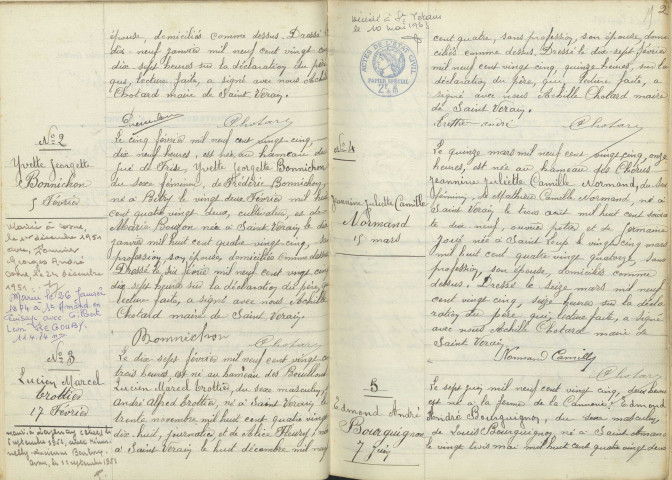 épouse, domiciliés comme dessus. Dressé le
dix-neuf janvier mil neuf cent vingt-cinq
dix sept heures sur la déclaration du père,
que, lecture faite, a signé avec nous Achille
Chotard maire de Saint Verain.
Chotard
No 2
Yvette Georgette
Bonnichon
5 Février
Le cinq février mil neuf cent vingt-cinq,
dix neuf heures, est née au hameau du
Yvette Georgette Bonnichon,
du sexe féminin, de Frédéric Bonnichon,
né à Bitry le vingt deux Février mil huit
cent quatre vingt deux, cultivateur, et de
Marie née à Saint Verain le
janvier mil huit cent quatre vingt cinq, sans
profession, son épouse, domiciliés comme dessus.
Dressé le six février mil neuf cent vingt-cinq
dix sept heures sur la déclaration du père, qui,
lecture faite, a signé avec nous Achille
Chotard maire de Saint Verain.
Bonnichon
Chotard
décembre 1951
Georges André
24 décembre
1951
Marié le 26 Janvier
1974 à St Amand en
Puisaye avec Gilbert
Léon
No 3
Lucien Marcel
Crottier
17 Février
Le dix sept février mil neuf cent vingt-cinq
trois heures, est né au hameau des
Lucien Marcel Crottier, du sexe masculin, de
André Alfred Crottier, né à Saint Verain, le
trente novembre mil huit cent quatre vingt
dix huit, journalier, et de Alice Fleury, née
à Saint Verain le huit décembre mil neuf
septembre 1952
septembre 1952
décédé à St Verain
le 10 mai
2
cent quatre, sans profession, son épouse, domi-
ciliés comme dessus. Dressé le dix sept février
mil neuf cent vingt cinq, quinze heures, sur la
déclaration du père, qui, lecture faite, a
signé avec nous Achille Chotard maire
de Saint Verain.
Crottier André
Chotard
No 4
Jeannine Juliette Camille
Normand
15 mars
Le quinze mars mil neuf cent vingt cinq, onze
heures, est née au hameau des
Jeannine Juliette Camille Normand, du sexe
féminin, de Mathieu Camille Normand, né à
Saint Verain le trois août mil huit cent
le dix neuf, ouvrier potier et de Germaine
née à Saint Loup le vingt cinq mars
mil huit cent quatre vingt quatorze, sans
profession, son épouse, domiciliés comme
dessus. Dressé le seize mars mil neuf
cent vingt cinq, seize heures, sur la décla-
ration du père qui, lecture faite, a signé
avec nous Achille Chotard maire de
Saint Verain.
Normand Camille
Chotard
5
Edmond André
Bourguignon
7 Juin
Le sept juin mil neuf cent vingt cinq, deux heures
est né à la ferme de la Edmond
André Bourguignon, du sexe masculin,
de Louis Bourguignon, né à Saint Amand
le vingt trois mai mil huit cent quatre vingt deux